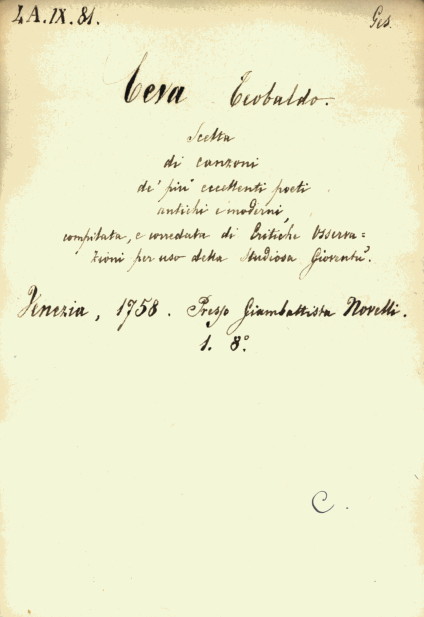 4 A. IX. 81. Ges.
Ceva Teobaldo.
Scelta
di canzoni
de' più eccellenti poeti
antichi e moderni,
compilata, e corredata di Critiche Osserva=
zioni per uso della Studiosa Gioventù.
Venezia, 1758. Presso Giambattista Novelli.
1. 8°.
C.